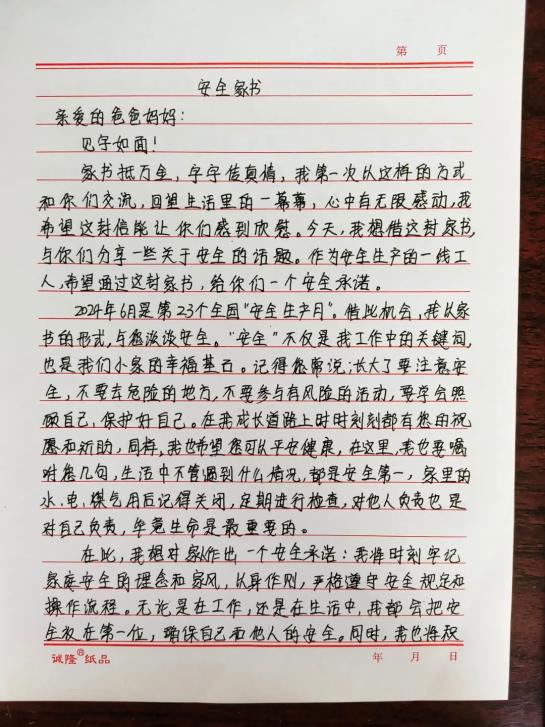 第 页
安全家书
亲爱的爸爸妈妈：
见字如面！
家书抵万金，字字传真情，我第一次以这样的方式
和你们交流，回望生活里的一幕幕，心中有无限感动，我
希望这封信能让你们感到欣慰。今天，我想借这封家书，
与你们分享一些关于安全的话题。作为安全生产的一线工
人，希望通过这封家书，给你们一个安全承诺。
2024年6月是第23个全国“安全生产月”。借此机会，我以家
书的形式，与您谈谈安全。“安全”不仅是我工作中的关键词，
也是我们小家的幸福基石。记得您常说，长大了要注意安
全，不要去危险的地方，不要参与有风险的活动，要学会照
顾自己，保护好自己。在我成长道路上时时刻刻都有您的祝
愿和祈助，同样，我也希望您可以平安健康，在这里，我也要嘱
咐您几句，生活中不管遇到什么情况，都是安全第一，家里的
水、电、煤气用后记得关闭，定期进行检查，对他人负责也是
对自己负责，毕竟生命是最重要的。
在此，我想对家人作出一个安全承诺：我将时刻牢记
家庭安全的理念和家风，以身作则，严格遵守安全规定和
操作流程。无论是在工作，还是在生活中，我都会把安
全放在第一位，确保自己和他人的安全。同时，我也将积
诚隆®纸品 年 月 日